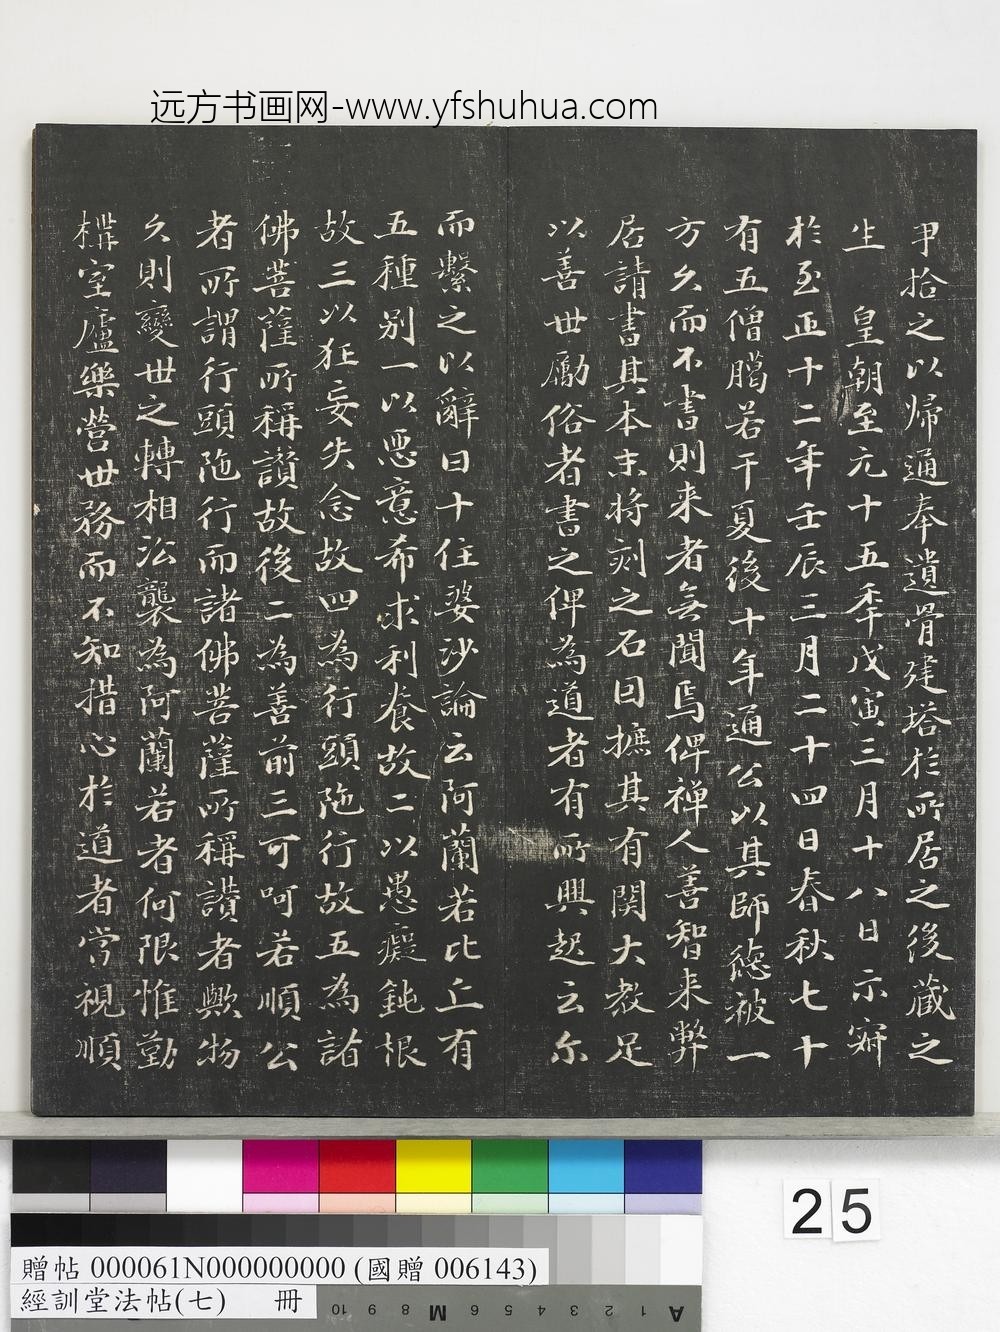 远方书画网-www.yfshuhua.com
尹拾之以歸通奉遺骨建塔於所居之後藏之
生 皇朝至元十五季戊寅三月十八日示寂
於至正十二年壬辰三月二十四日春秋七十
有五僧臘若干夏後十年通公以其師德被一
方久而不書則来者無聞焉俾禅人善智来弊
居請書其本末将刻之石因摭其有関大教足
以善世勵俗者書之俾為道者有所興起云尔
而繫之以辭曰十住婆沙論云阿蘭若比丘有
五種别一以惡意希求利養故二以愚癡鈍根
故三以狂妄失念故四為行頭陁行故五為諸
佛菩薩所稱讃故後二為善前三可呵若順公
者所謂行頭陁行而諸佛菩薩所稱讃者歟物
久則變世之轉相㳂襲為阿蘭若者何限惟勤
構室廬樂營世務而不知措心於道者当視順
25
贈帖 000061N000000000 (國贈 006143)
經訓堂法帖(七) 冊
10 9 8 M 6 5 4 3 2 1 A